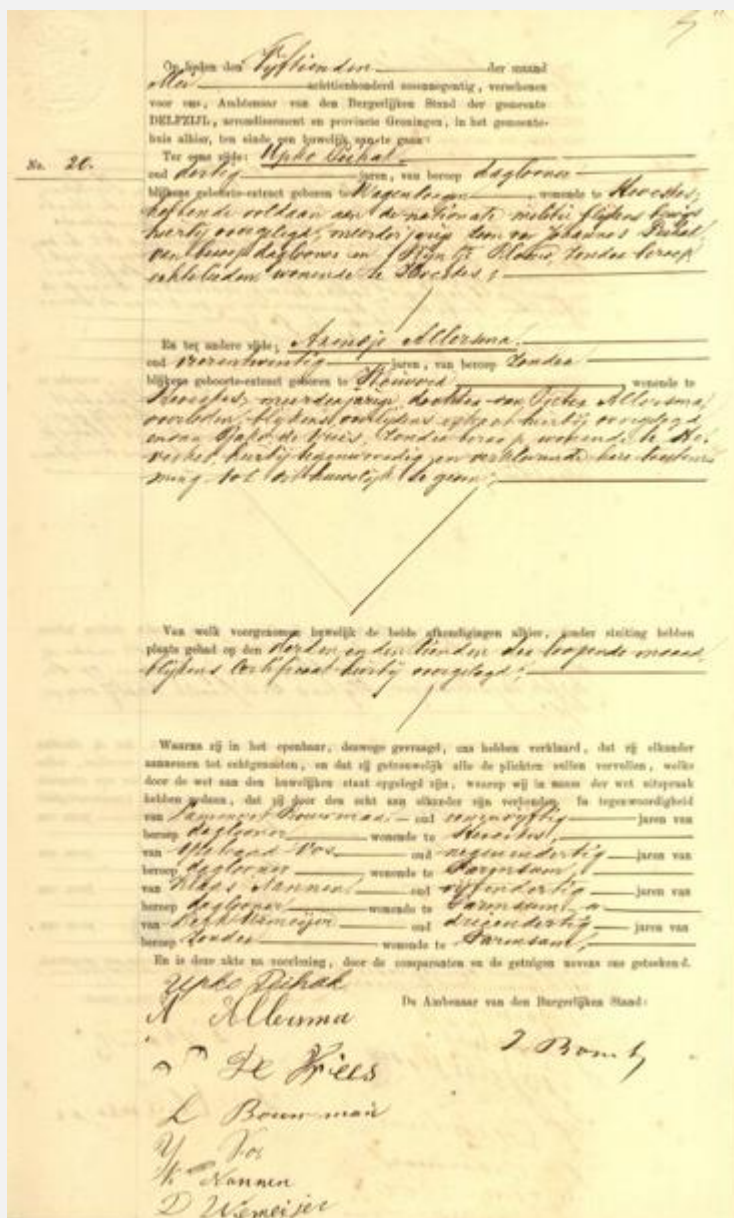 Op heden den Vijftienden der maand
Mei achttienhonderd zesennegentig, verschenen
voor ons, Ambtenaar van den Burgerlijken Stand der gemeente
DELFZIJL, arrondissement en provincie Groningen, in het gemeente-
huis alhier, ten einde een huwelijk aan te gaan:
No. 20.
Ter eene zijde: Upko Dijhak
oud dertig jaren, van beroep daglooner
blijkens geboorte-extract geboren te Wagenborgen wonende te Heveskes,
hebbende voldaan aan de nationale militie blijkens bewijs
hierbij overgelegd, meerderjarig zoon van Johannes
van beroep daglooner en zonder beroep
echtelieden wonende te Heveskes;
En ter andere zijde: Allersma
oud vierentwintig jaren, van beroep zonder
blijkens geboorte-extract geboren te wonende te
Heveskes, meerderjarige dochter van Pieter Allersma,
overleden, blijkens overlijdens extract hierbij overgelegd,
en van de Vries, zonder beroep, wonende te He-
veskes, hierbij tegenwoordig en verklarende hare toestem-
ming tot dit huwelijk te geven;
Van welk voorgenomen huwelijk de beide afkondigingen alhier, zonder stuiting hebben
plaats gehad op den derden en den tienden der loopende maand,
blijkens certificaat hierbij overgelegd;
Waarna zij in het openbaar, deswege gevraagd, ons hebben verklaard, dat zij elkander
aannemen tot echtgenooten, en dat zij getrouwelijk alle de plichten zullen vervullen, welke
door de wet aan den huwelijken staat opgelegd zijn, waarop wij in naam der wet uitspraak
hebben gedaan, dat zij door den echt aan elkander zijn verbonden. In tegenwoordigheid
van Lammert Bouwman oud jaren van
beroep daglooner wonende te Heveskes,
van Vos oud negenendertig jaren van
beroep daglooner wonende te Farmsum,
van Klaas Nannen oud vijfendertig jaren van
beroep daglooner wonende te Farmsum,
van oud drieendertig jaren van
beroep zonder wonende te Farmsum,
En is deze akte na voorlezing, door de comparanten en de getuigen nevens ons geteekend.
Upko Dijhak
De Ambtenaar van den Burgerlijken Stand:
A Allersma
De Vries
L Bouwman
Y Vos
K Nannen
D